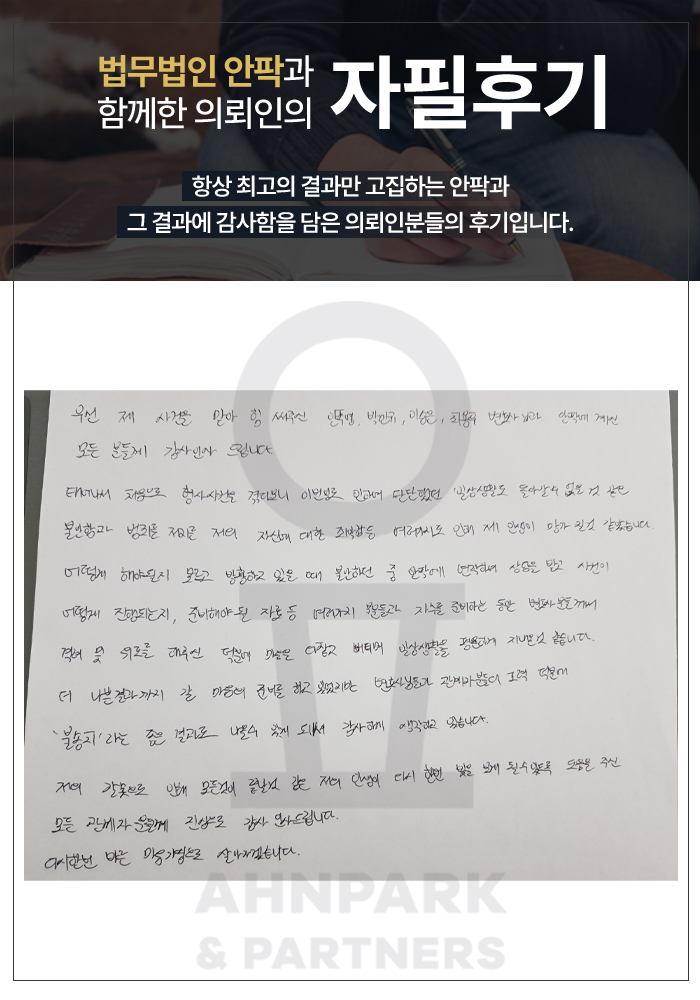 법무법인 안팍과
함께한 의뢰인의
자필후기
항상 최고의 결과만 고집하는 안팍과
그 결과에 감사함을 담은 의뢰인분들의 후기입니다.
우선 제 사건을 맡아 힘 써주신 안주영, 박민규, 이승은, 최용주 변호사님과 안팍에 계신
모든 분들께 감사인사 드립니다
태어나서 처음으로 형사사건을 겪다보니 이번일로 인해 단단했던 일상생활도 돌아갈수 없을 것 같은
불안함과 범죄를 저지른 저의 자신에 대한 죄책감등 여러가지로 인해 제 인생이 망가 질것 같았습니다.
어떻게 해야될지 모르고 방황하고 있을 때 불안하던 중 안팍에 연락하여 상담을 받고 사건이
어떻게 진행되는지, 준비해야 될 자료 등 여러가지 부분들과 자수를 준비하는 동안 변호사분들께서
격려 및 위로를 해주신 덕분에 마음을 다잡고 버티며 일상생활을 평범하게 지내온것 같습니다.
더 나쁜결과까지 갈 마음의 준비를 하고 있었지만 변호사분들과 관계자분들의 노력 덕분에
'불송치' 라는 좋은 결과로 나올수 있게 되어서 감사하게 생각하고 있습니다.
저의 잘못으로 인해 모든것이 끝날것 같은 저의 인생에 다시 한번 빛을 보게 될수있도록 도움을 주신
모든 관계자 분들께 진심으로 감사 인사드립니다.
다시한번 바른 마음가짐으로 살아가겠습니다.
AHNPARK
& PARTNERS